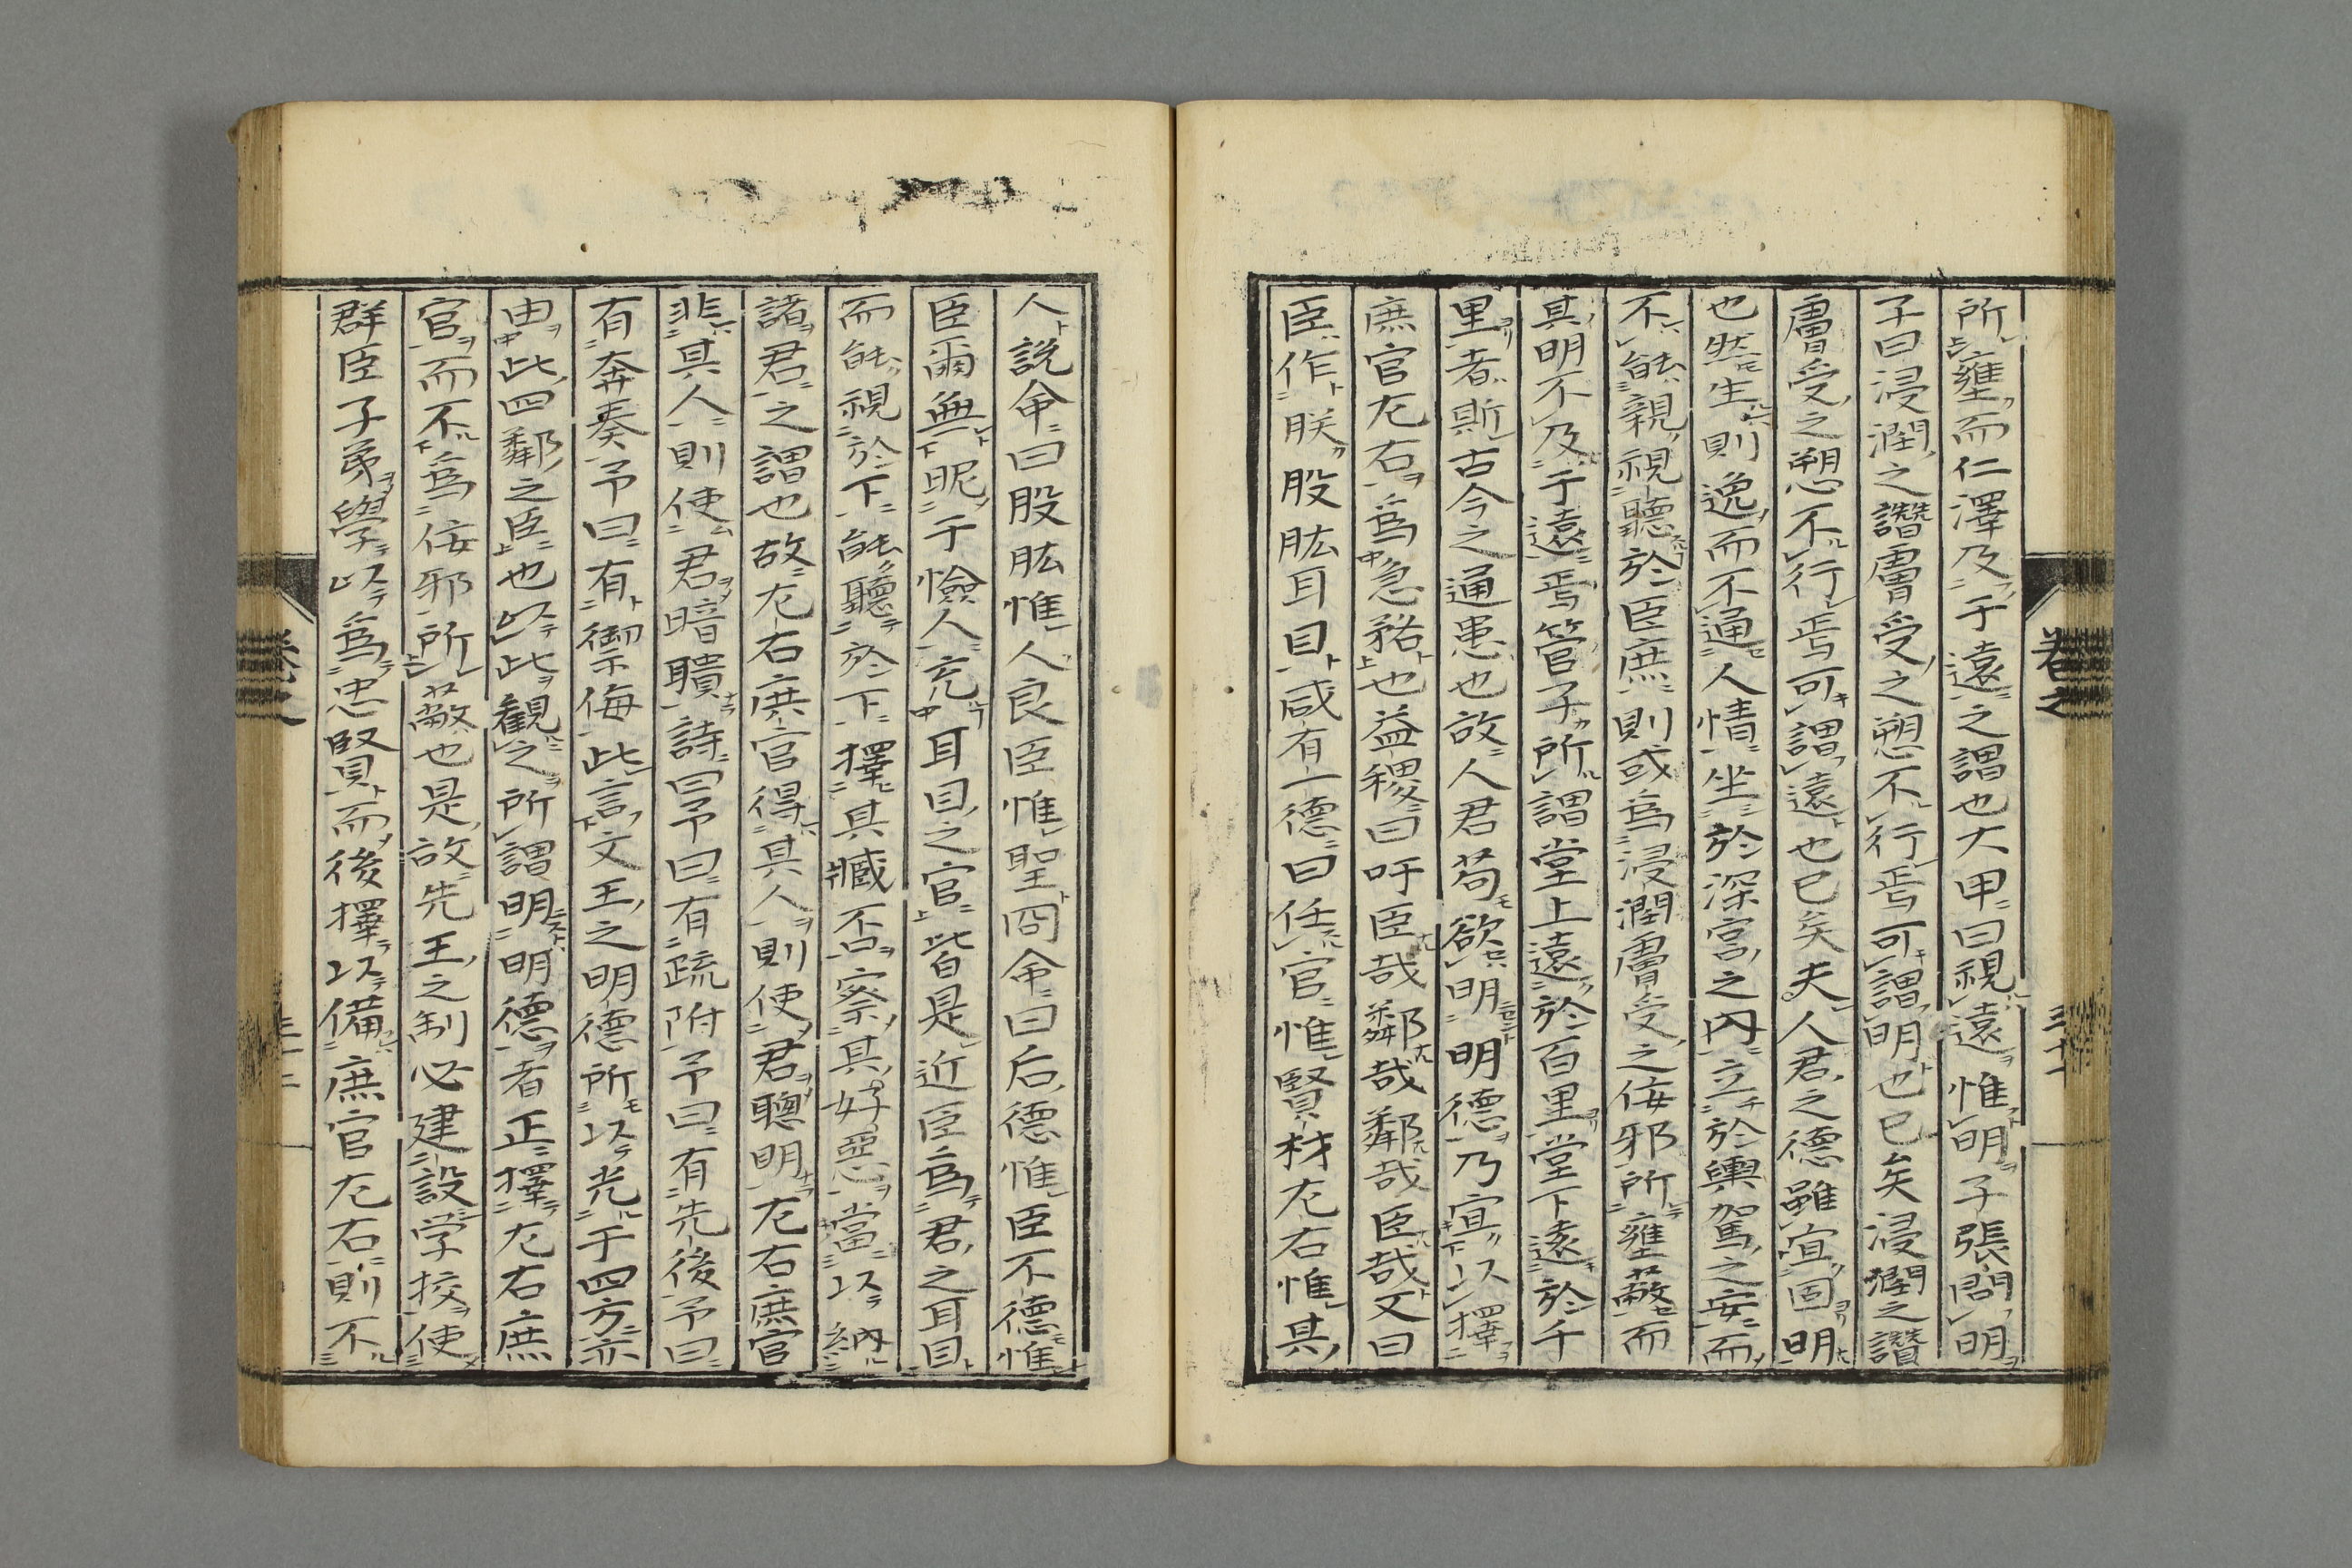 所壅而仁澤及于遠之謂也大甲曰視遠惟明子張問明
子曰浸潤之譖膚受之愬不行焉可謂明也已矣浸潤之譖
膚受之愬不行焉可謂遠也已矣夫人君之德雖宜固明
也然生則逸而不通人情坐於深宮之內立於輿駕之安而
不能親視聽於臣庶則或爲浸潤膚受之侫邪所壅蔽而
其明不及于遠焉管子所謂堂上遠於百里堂下遠於千
里者斯古今之通患也故人君苟欲明明德乃宜以擇
庶官左右爲急務也益稷曰吁臣哉鄰哉鄰哉臣哉又曰
臣作朕股肱耳目咸有一德曰任官惟賢材左右惟其
人說命曰股肱惟人良臣惟聖冏命曰后德惟臣不德惟
臣爾無昵于憸人充耳目之官皆是近臣爲君之耳目
而能視於下能聽於下擇其臧否察其好惡當以納
諸君之謂也故左右庶官得其人則使君聰明左右庶官
非其人則使君暗聵詩曰予曰有疏附予曰有先後予曰
有奔奏予曰有禦侮此言文王之明德所以光于四方亦
由此四鄰之臣也以此觀之所謂明明德者正擇左右庶
官而不爲侫邪所蔽也是故先王之制必建設学校使
群臣子弟學以爲忠賢而後擇以備庶官左右則不
卷之
三十一
卷之
三十二